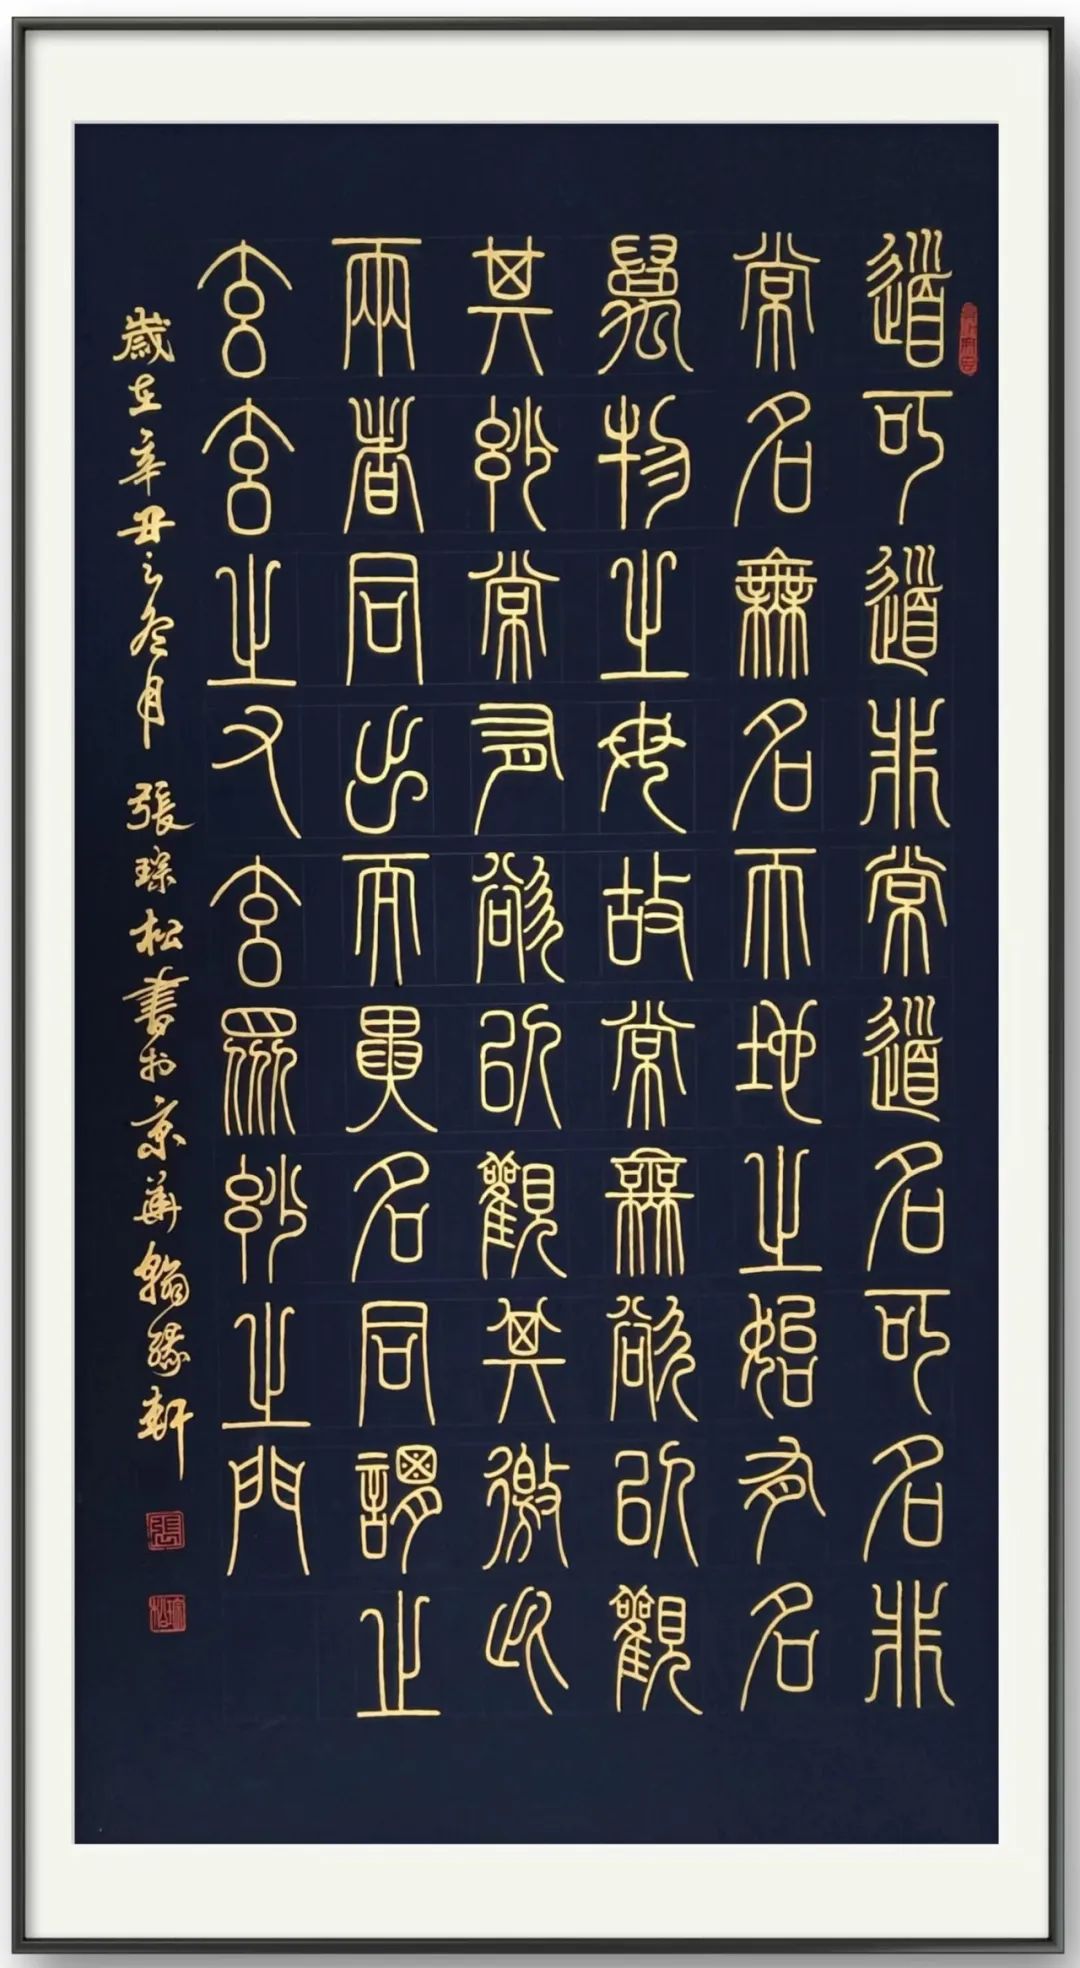 道可道非常道名可名非
常名無名天地之始有名
萬物之母故常無欲以觀
其妙常有欲以觀其徼此
兩者同出而異名同謂之
玄玄之又玄眾妙之門
歲在辛丑之冬月 張琮松書於京華翰緣軒
張
琮松